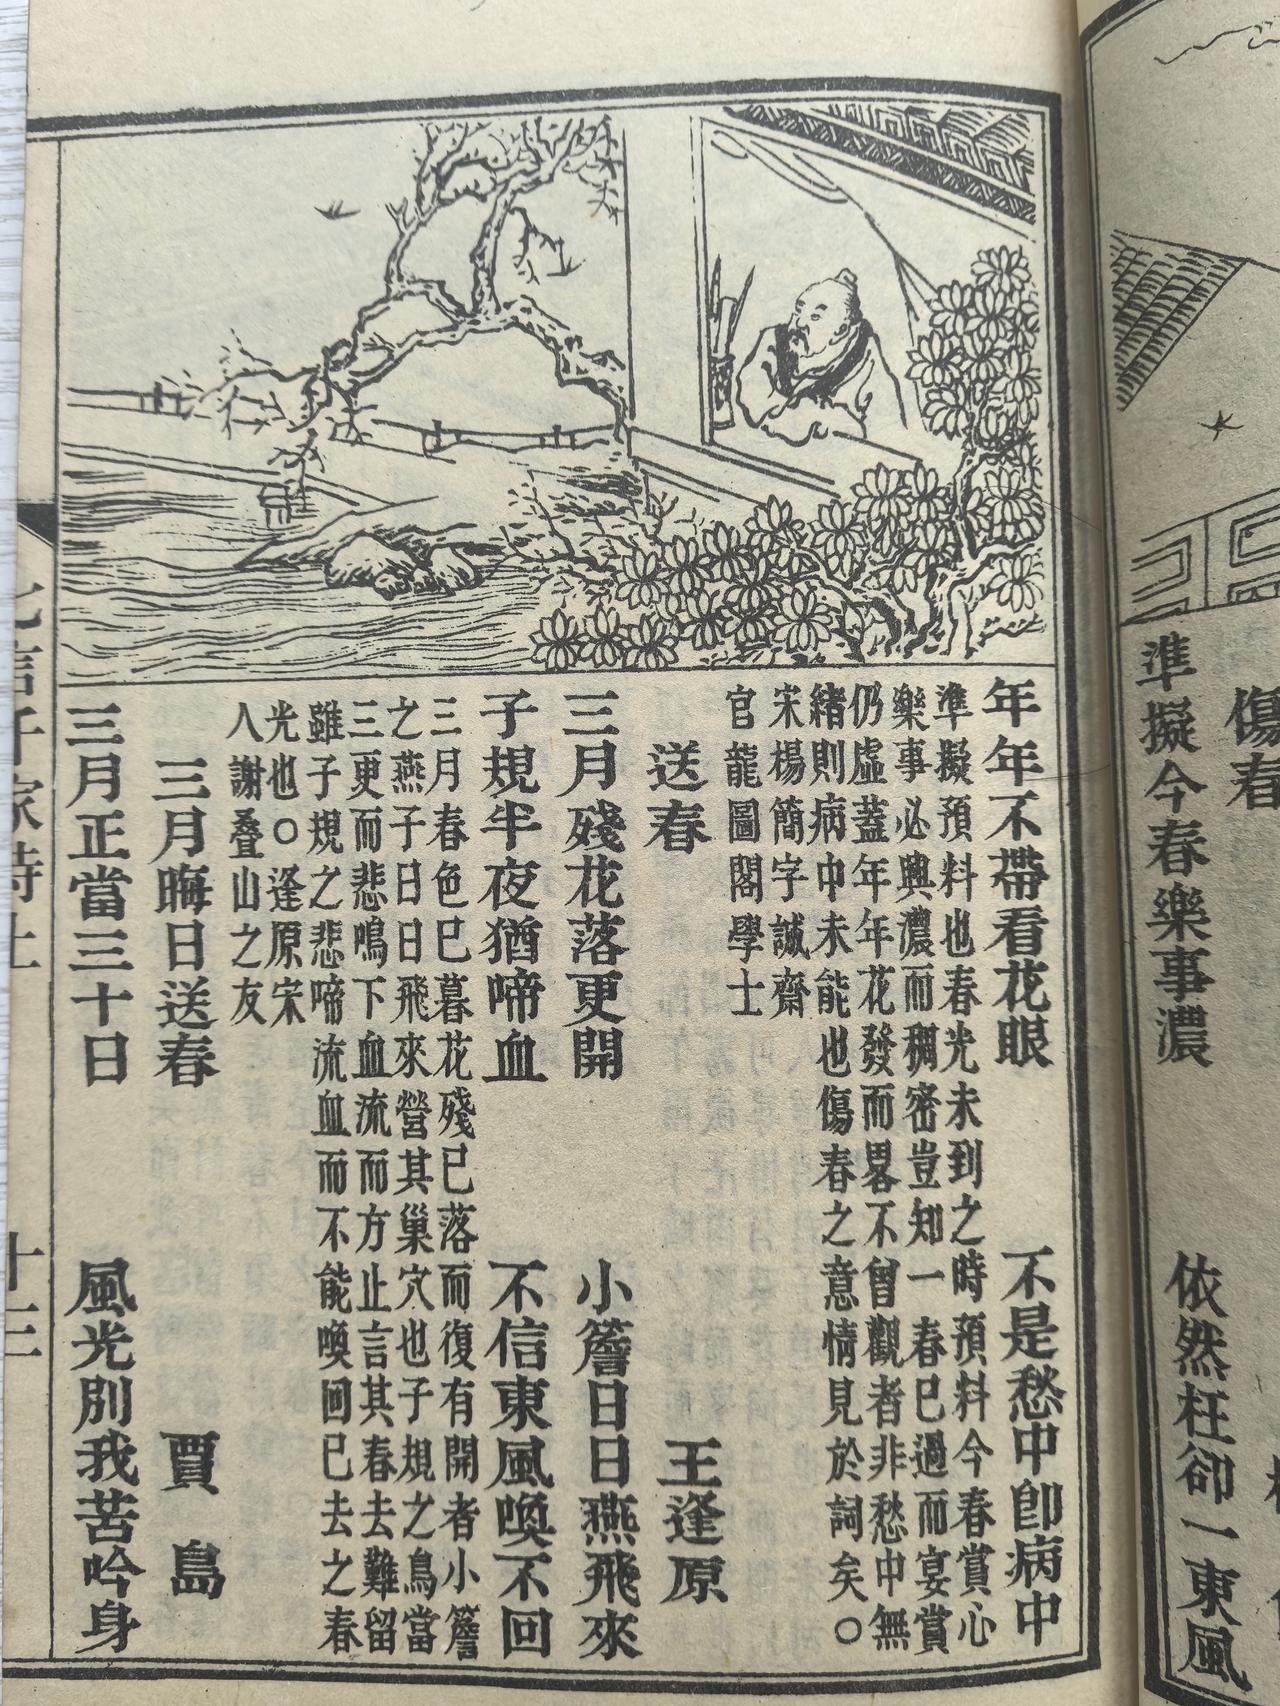 傷春
準擬今春樂事濃
依然枉卻一東風
年年不帶看花眼
不是愁中卽病中
準擬預料也春光未到之時預料今春賞心
樂事必興濃而稠密豈知一春已過而宴賞
仍虛蓋年年花發而畧不曾觀者非愁中無
緒則病中未能也傷春之意情見於詞矣○
宋楊簡字誠齋
官龍圖閣學士
送春
王逢原
三月殘花落更開
小簷日日燕飛來
子規半夜猶啼血
不信東風喚不回
三月春色已暮花殘已落而復有開者小簷
之燕子日日飛來營其巢穴也子規之鳥當
三更而悲鳴下血流而方止言其春去難留
雖子規之悲啼流血而不能喚回已去之春
光也○逢原宋
人謝叠山之友
三月晦日送春
賈島
三月正當三十日
風光別我苦吟身
千家詩上
十三